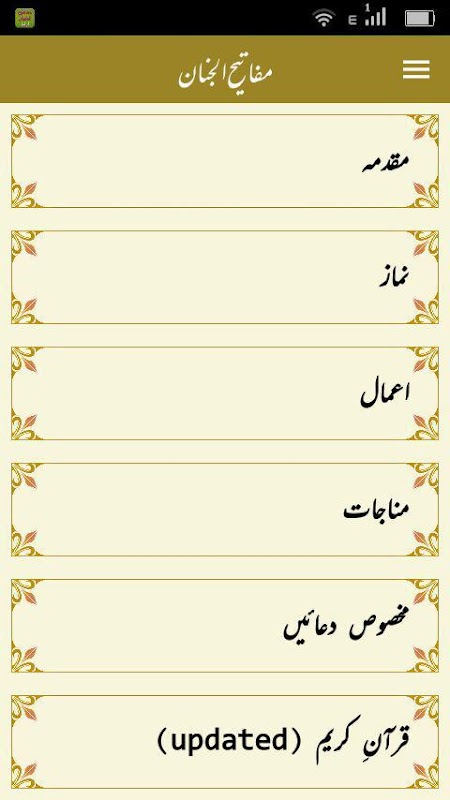 E 1
مفاتیح الجنان
مقدمہ
نماز
اعمال
مناجات
مخصوص دعائیں
قرآنِ کریم (updated)